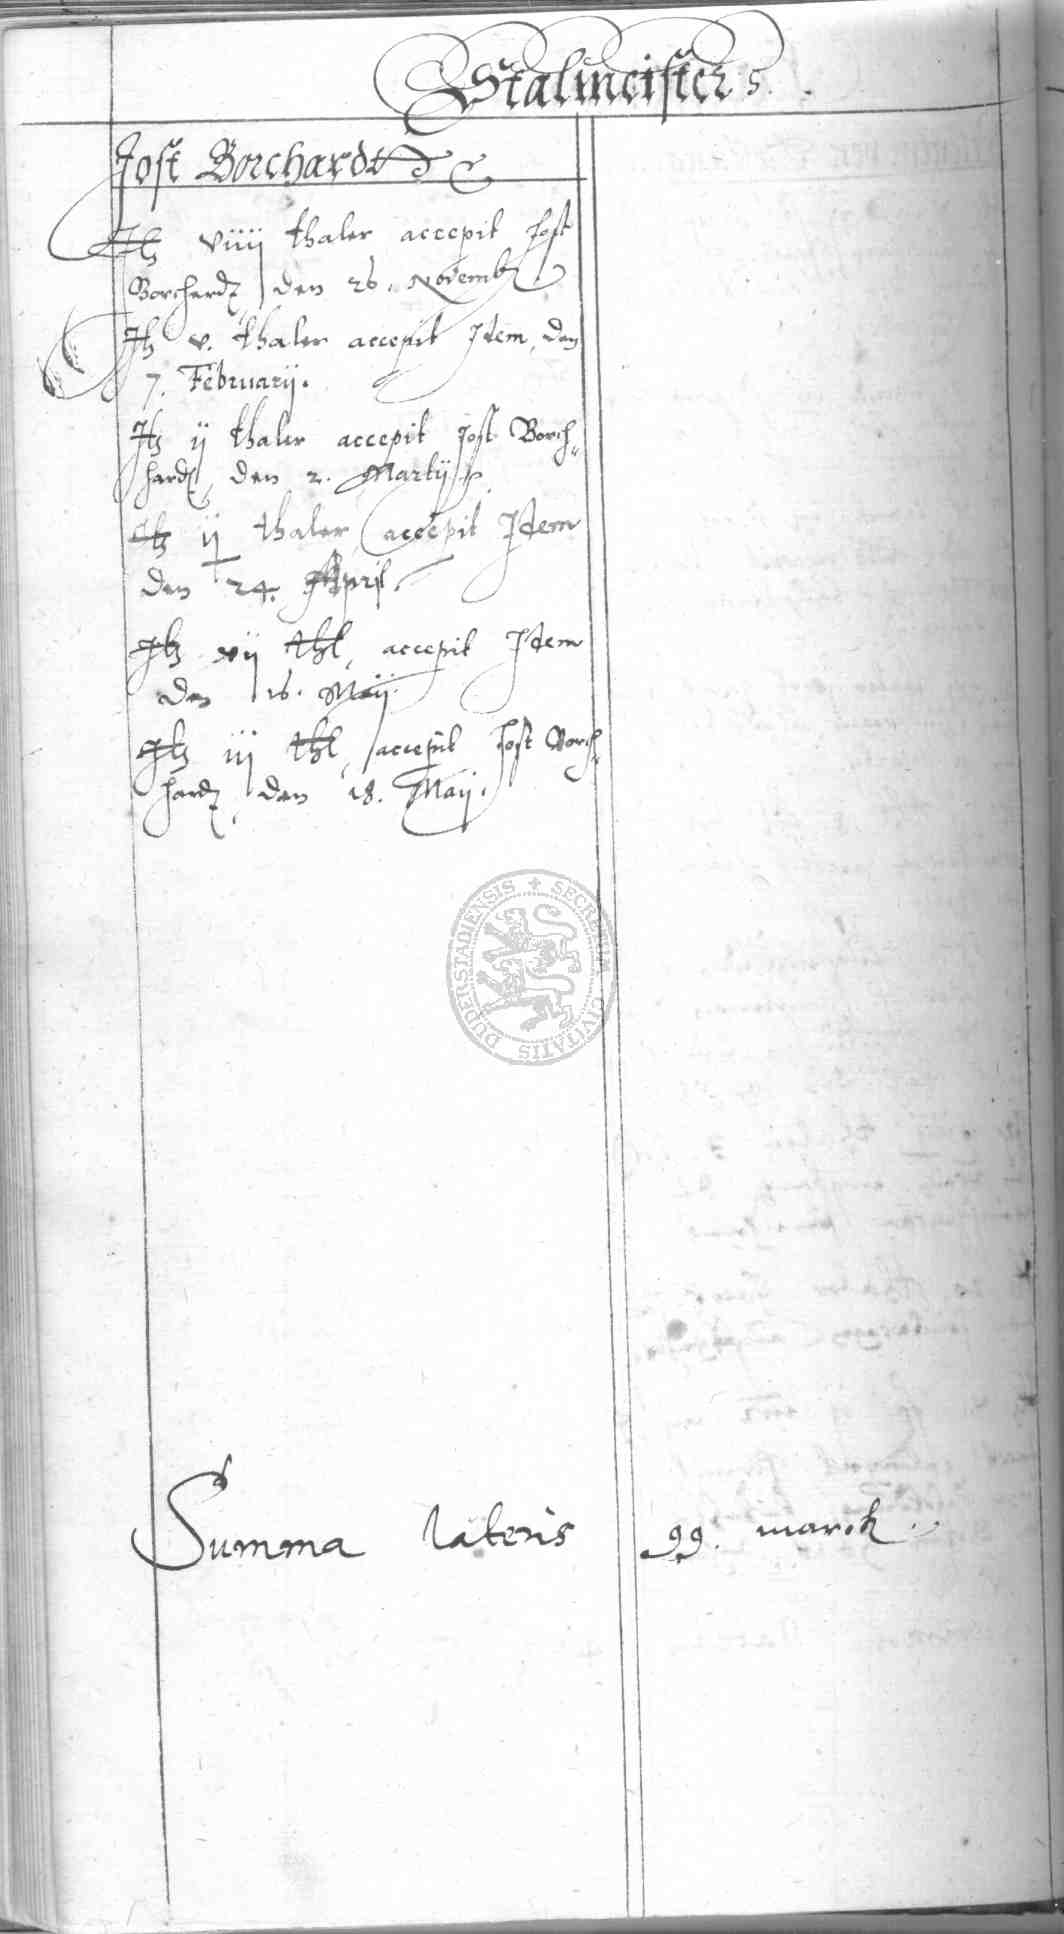 Stalmeisters.
Jost Borchardt
Itz viiij thaler accepit Jost
Borchardt, den 26. Novemb.
Itz v. thaler accepit Idem, den
7. February.
Itz ij thaler accepit Jost Borch„
hardt, den 2. Martij
Itz ij thaler, accepit Idem
den 24. April.
Itz vij thl, accepit Idem
den 16. Maij.
Itz iij thl, accepit Jost Borch„
hardt, den 18. Maij.
DUDERSTADIENSIS + SECRETUM CIVITATIS
Summa lateris 99. marck.